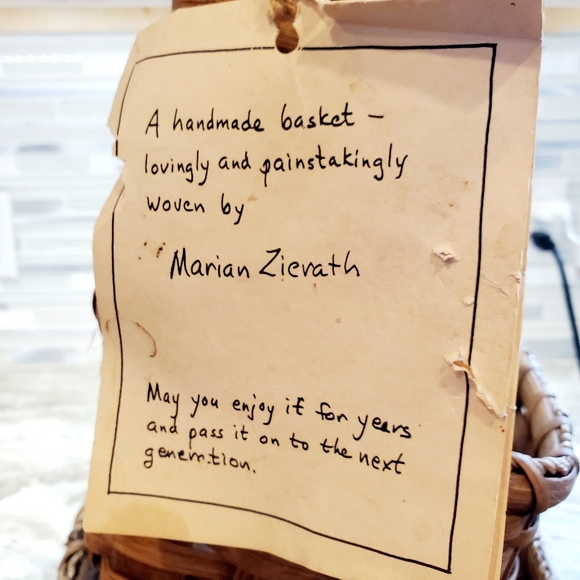 A handmade basket -
lovingly and painstakingly
woven by
Marian Zierath
May you enjoy it for years
and pass it on to the next
generation.